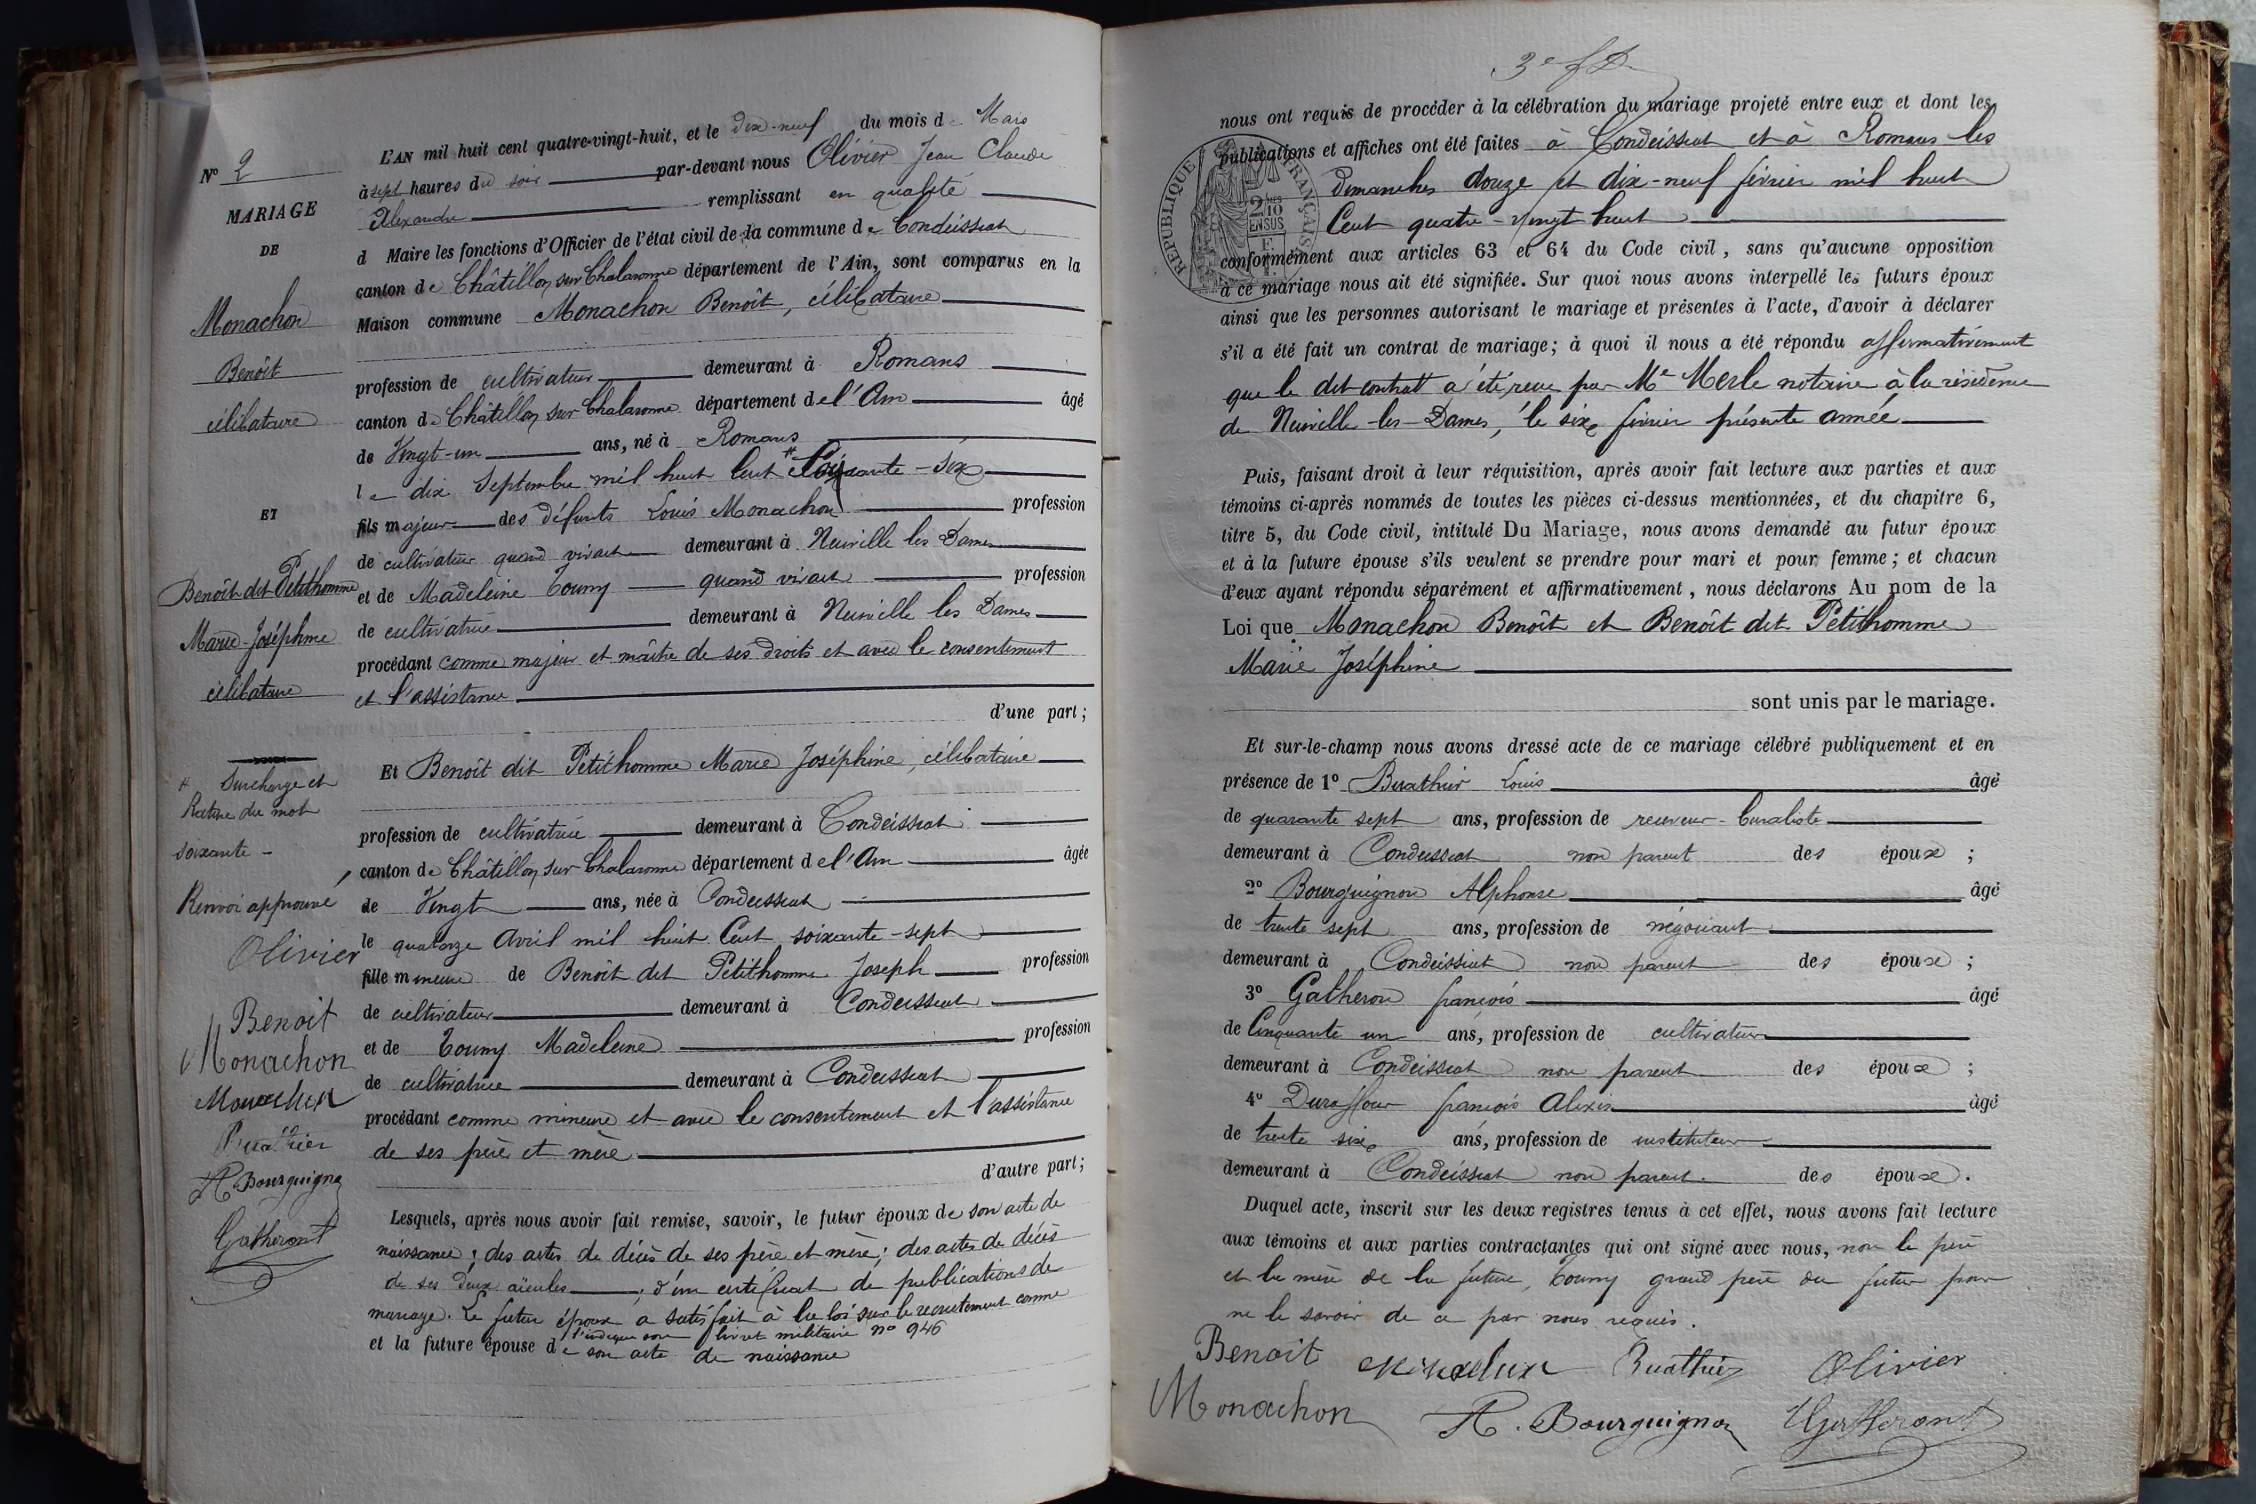 N° 2
MARIAGE
DE
Monachon
Benoît
célibataire
ET
Benoît dit Petithomme
Marie-Joséphine
célibataire
Surcharge et
Rature du mot
soixante -
Renvoi approuvé
Olivier
Benoit
Monachon
Buathier
A. Bourguignon
Gatheront
L'AN mil huit cent quatre-vingt-huit, et le dix-neuf du mois de Mars
à sept heures du soir par-devant nous Olivier Jean Claude
Alexandre remplissant en qualité
d Maire les fonctions d'Officier de l'état civil de la commune de Condeissiat
canton de Châtillon sur Chalaronne département de l'Ain, sont comparus en la
Maison commune Monachon Benoît, célibataire
profession de cultivateur demeurant à Romans
canton de Châtillon sur Chalaronne département de l'Ain âgé
de Vingt-un ans, né à Romans
le dix Septembre mil huit Cent Soixante-six
fils majeur des défunts Louis Monachon profession
de cultivateur quand vivait demeurant à Neuville les Dames
et de Madeleine Toumy quand vivait profession
de cultivatrice demeurant à Neuville les Dames
procédant comme majeur et maître de ses droits et avec le consentement
et l'assistance
d'une part;
Et Benoît dit Petithomme Marie Joséphine, célibataire
profession de cultivatrice demeurant à Condeissiat
canton de Châtillon sur Chalaronne département de l'Ain âgée
de Vingt ans, née à Condeissiat
le quatorze Avril mil huit Cent soixante-sept
fille mineure de Benoît dit Petithomme Joseph profession
de cultivateur demeurant à Condeissiat
et de Toumy Madeleine profession
de cultivatrice demeurant à Condeissiat
procédant comme mineure et avec le consentement et l'assistance
de ses père et mère
d'autre part;
Lesquels, après nous avoir fait remise, savoir, le futur époux de son acte de
naissance; des actes de décès de ses père et mère; des actes de décès
de ses deux aïeules; d'un certificat de publications de
mariage. Le futur époux a satisfait à la loi sur le recrutement comme
l'indique son livret militaire n° 946
et la future épouse de son acte de naissance
3e f
nous ont requis de procéder à la célébration du mariage projeté entre eux et dont les
publications et affiches ont été faites à Condeissiat et à Romans les
dimanches douze et dix-neuf février mil huit
Cent quatre-vingt huit
RÉPUBLIQUE FRANÇAISE
2/10 EN SUS
conformément aux articles 63 et 64 du Code civil, sans qu'aucune opposition
à ce mariage nous ait été signifiée. Sur quoi nous avons interpellé les futurs époux
ainsi que les personnes autorisant le mariage et présentes à l'acte, d'avoir à déclarer
s'il a été fait un contrat de mariage; à quoi il nous a été répondu affirmativement
que le dit contrat a été reçu par Me Merle notaire à la résidence
de Neuville-les-Dames, le six février présente année
Puis, faisant droit à leur réquisition, après avoir fait lecture aux parties et aux
témoins ci-après nommés de toutes les pièces ci-dessus mentionnées, et du chapitre 6,
titre 5, du Code civil, intitulé Du Mariage, nous avons demandé au futur époux
et à la future épouse s'ils veulent se prendre pour mari et pour femme; et chacun
d'eux ayant répondu séparément et affirmativement, nous déclarons Au nom de la
Loi que Monachon Benoît et Benoît dit Petithomme
Marie Joséphine
sont unis par le mariage.
Et sur-le-champ nous avons dressé acte de ce mariage célébré publiquement et en
présence de 1° Buathier Louis âgé
de quarante sept ans, profession de receveur-buraliste
demeurant à Condeissiat non parent des époux;
2° Bourguignon Alphonse âgé
de trente sept ans, profession de négociant
demeurant à Condeissiat non parent des époux;
3° Gatheron françois âgé
de Cinquante un ans, profession de cultivateur
demeurant à Condeissiat non parent des époux;
4° Duraffour françois Alexis âgé
de trente six ans, profession de instituteur
demeurant à Condeissiat non parent des époux.
Duquel acte, inscrit sur les deux registres tenus à cet effet, nous avons fait lecture
aux témoins et aux parties contractantes qui ont signé avec nous, non le père
et la mère de la future, Toumy grand père du futur pour
ne le savoir de ce par nous requis.
Benoit Buathier Olivier
Monachon A. Bourguignon Gatheront